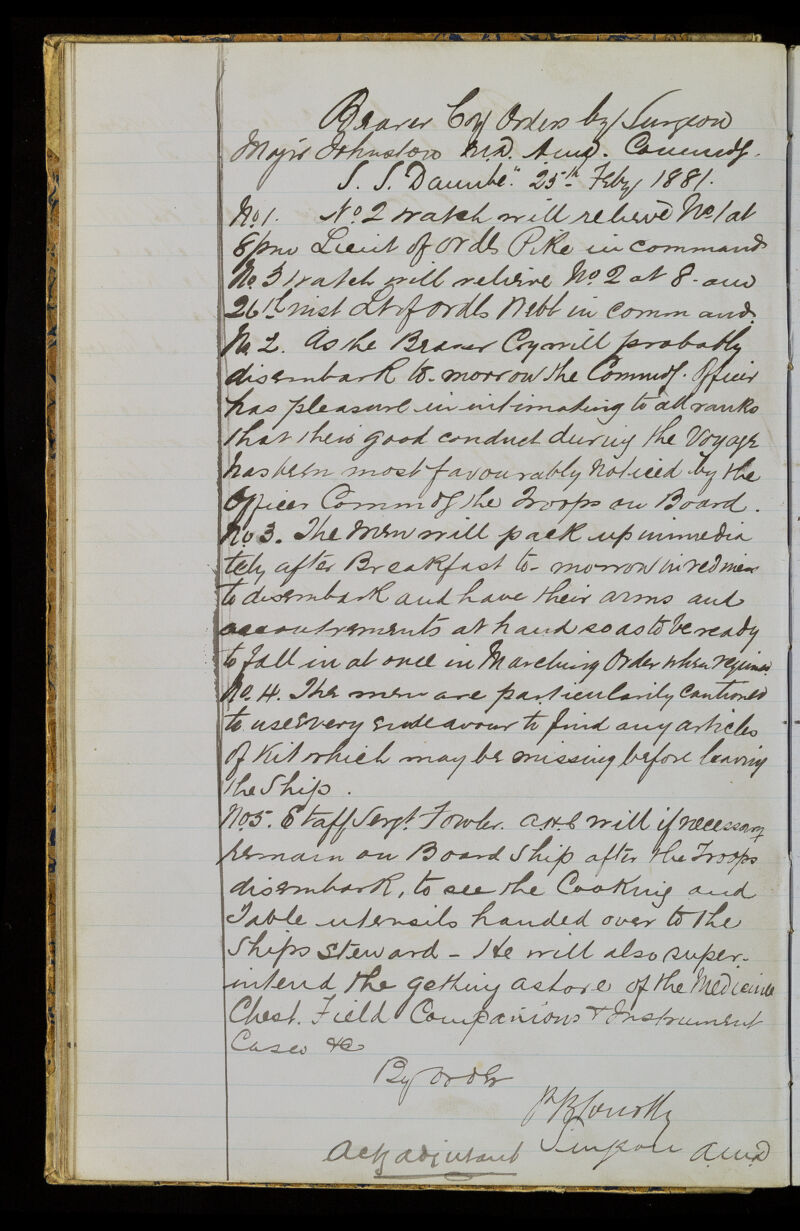 Bearer Coy Orders by Surgeon
Major Johnston M.D. A.M.D. Commdg.
S. S. "Danube". 25th Feby 1881.
No 1. No 2 watch will relieve No 1 at
8 pm Lieut of Ordls Pike in command
No 3 watch will relieve No 2 at 8. am
26th inst Lt of Ordls Nebb in command.
No 2. As the Bearer Coy will probably
disembark to-morrow the Commdg. Officer
has pleasure in intimating to all ranks
that their good conduct during the Voyage
has been most favourably noticed by the
Officer Commdg the Troops on Board.
No 3. The men will pack up immedia
tely after Breakfast to-morrow in rediness
to disembark and have their arms and
accoutrements at hand so as to be ready
to fall in at once in Marching Order when required
No. 4. The men are particularily cautioned
to use every endeavour to find any articles
of Kit which may be missing before leaving
the Ship.
No 5. Staff Sergt. Fowler. A.H.C will if necessary
remain on Board Ship after the Troops
disembark, to see the Cooking and
Table utensils handed over to the
Ships Steward - He will also super-
intend the getting ashore of the Medicine
Chest. Field Companions & Instrument
Cases &c
By Order
Surgeon A.M.D
Actg Adjutant